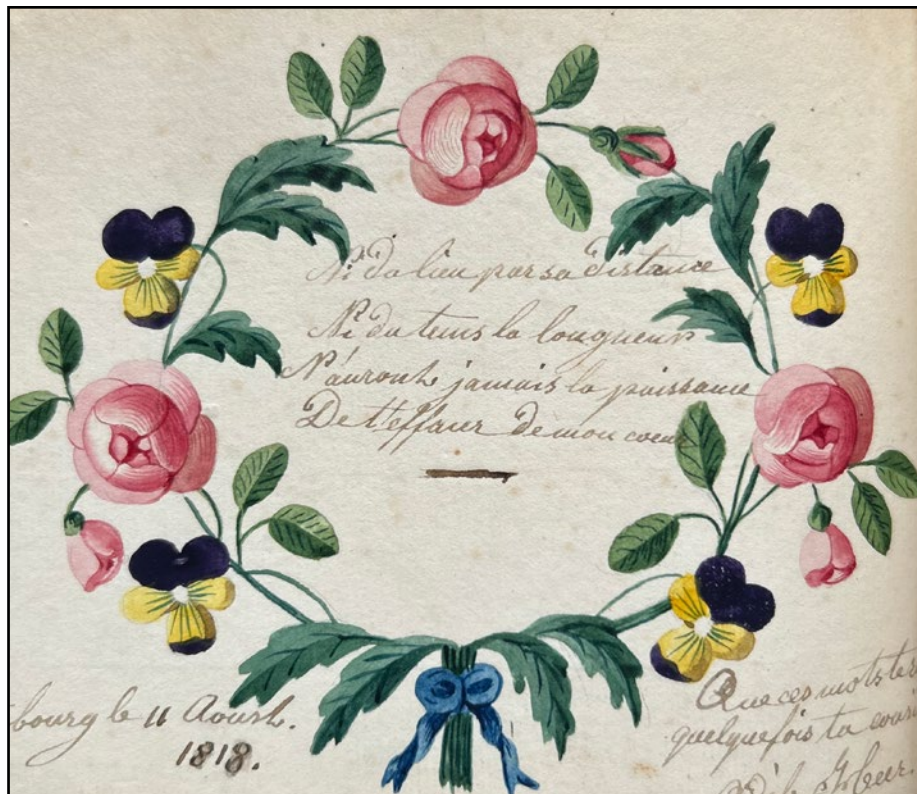 Ni du lieu par sa distance
Ni du tems la longueur
N'auront jamais la puissance
De t'effacer de mon coeur
bourg le 11 Aoust.
1818.
Que ces mots te
quelquefois ta